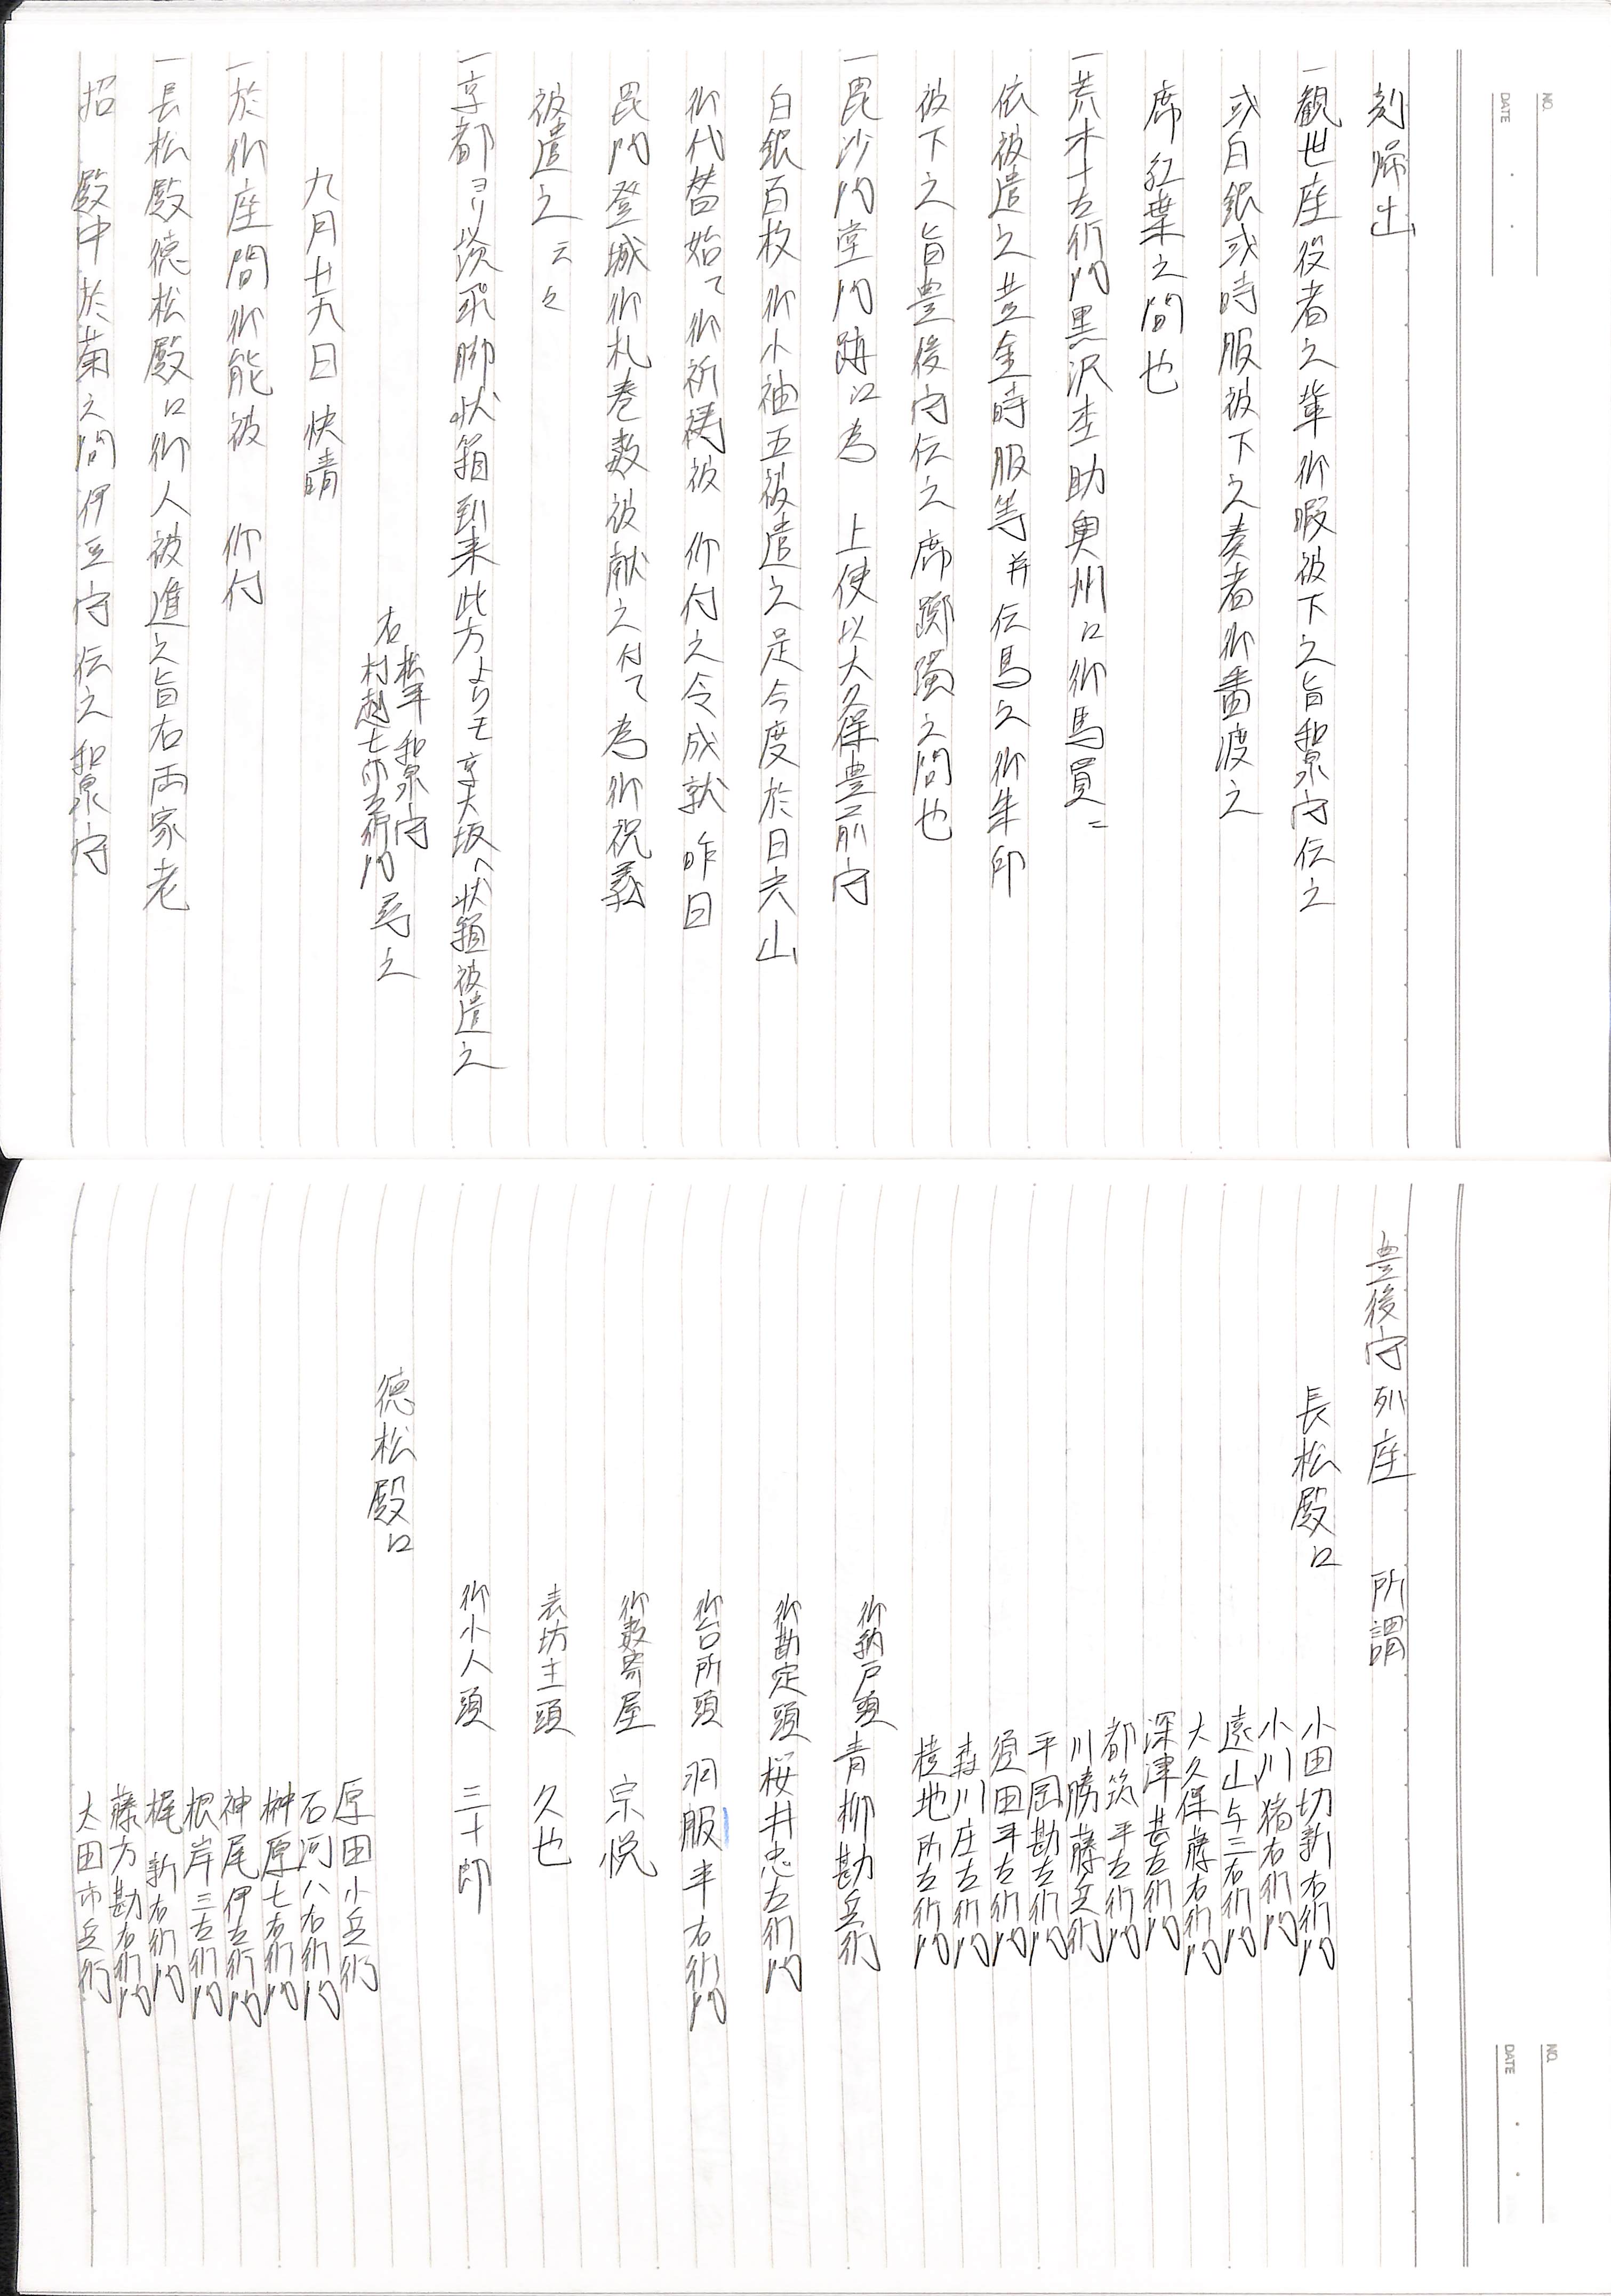 刻帰出
一観世座役者之輩御暇被下之旨和泉守伝之
或白銀或時服被下之奏者御番渡之
席紅葉之間也
一荒木十左衛門黒沢杢助奥州江御馬買ニ
依被遣之黄金時服等并伝馬之御朱印
被下之旨豊後守伝之席躑躅之間也
一毘沙門堂門跡江為 上使以大久保豊前守
白銀百枚御小袖五被遣之是今度於日光山
御代替始而御祈祷被 仰付之令成就昨日
毘門登城御札巻数被献之付而為御祝義
被遣之云々
一京都ヨリ災飛脚状箱到来此方よりモ京大坂へ状箱被遣之
右 松平和泉守
村越七郎左衛門 司之
九月廿九日 快晴
一於御座間御能被 仰付
一長松殿徳松殿江御人被進之旨右両家老
招 殿中於菊之間伊豆守伝之和泉守
豊後守列座 所謂
長松殿江
小田切新右衛門
小川猪右衛門
遠山与三右衛門
大久保藤右衛門
深津甚左衛門
都筑平左衛門
川勝藤兵衛
平岡勘左衛門
須田平左衛門
森川庄左衛門
桂地所左衛門
御納戸頭 青柳勘兵衛
御勘定頭 桜井忠左衛門
御台所頭 羽服半右衛門
御数寄屋 宗悦
表坊主頭 久也
御小人頭 三十郎
徳松殿江
原田小兵衛
石河八右衛門
榊原七右衛門
神尾伊左衛門
根岸三左衛門
梶新右衛門
藤方勘右衛門
太田市兵衛
NO.
DATE
NO.
DATE